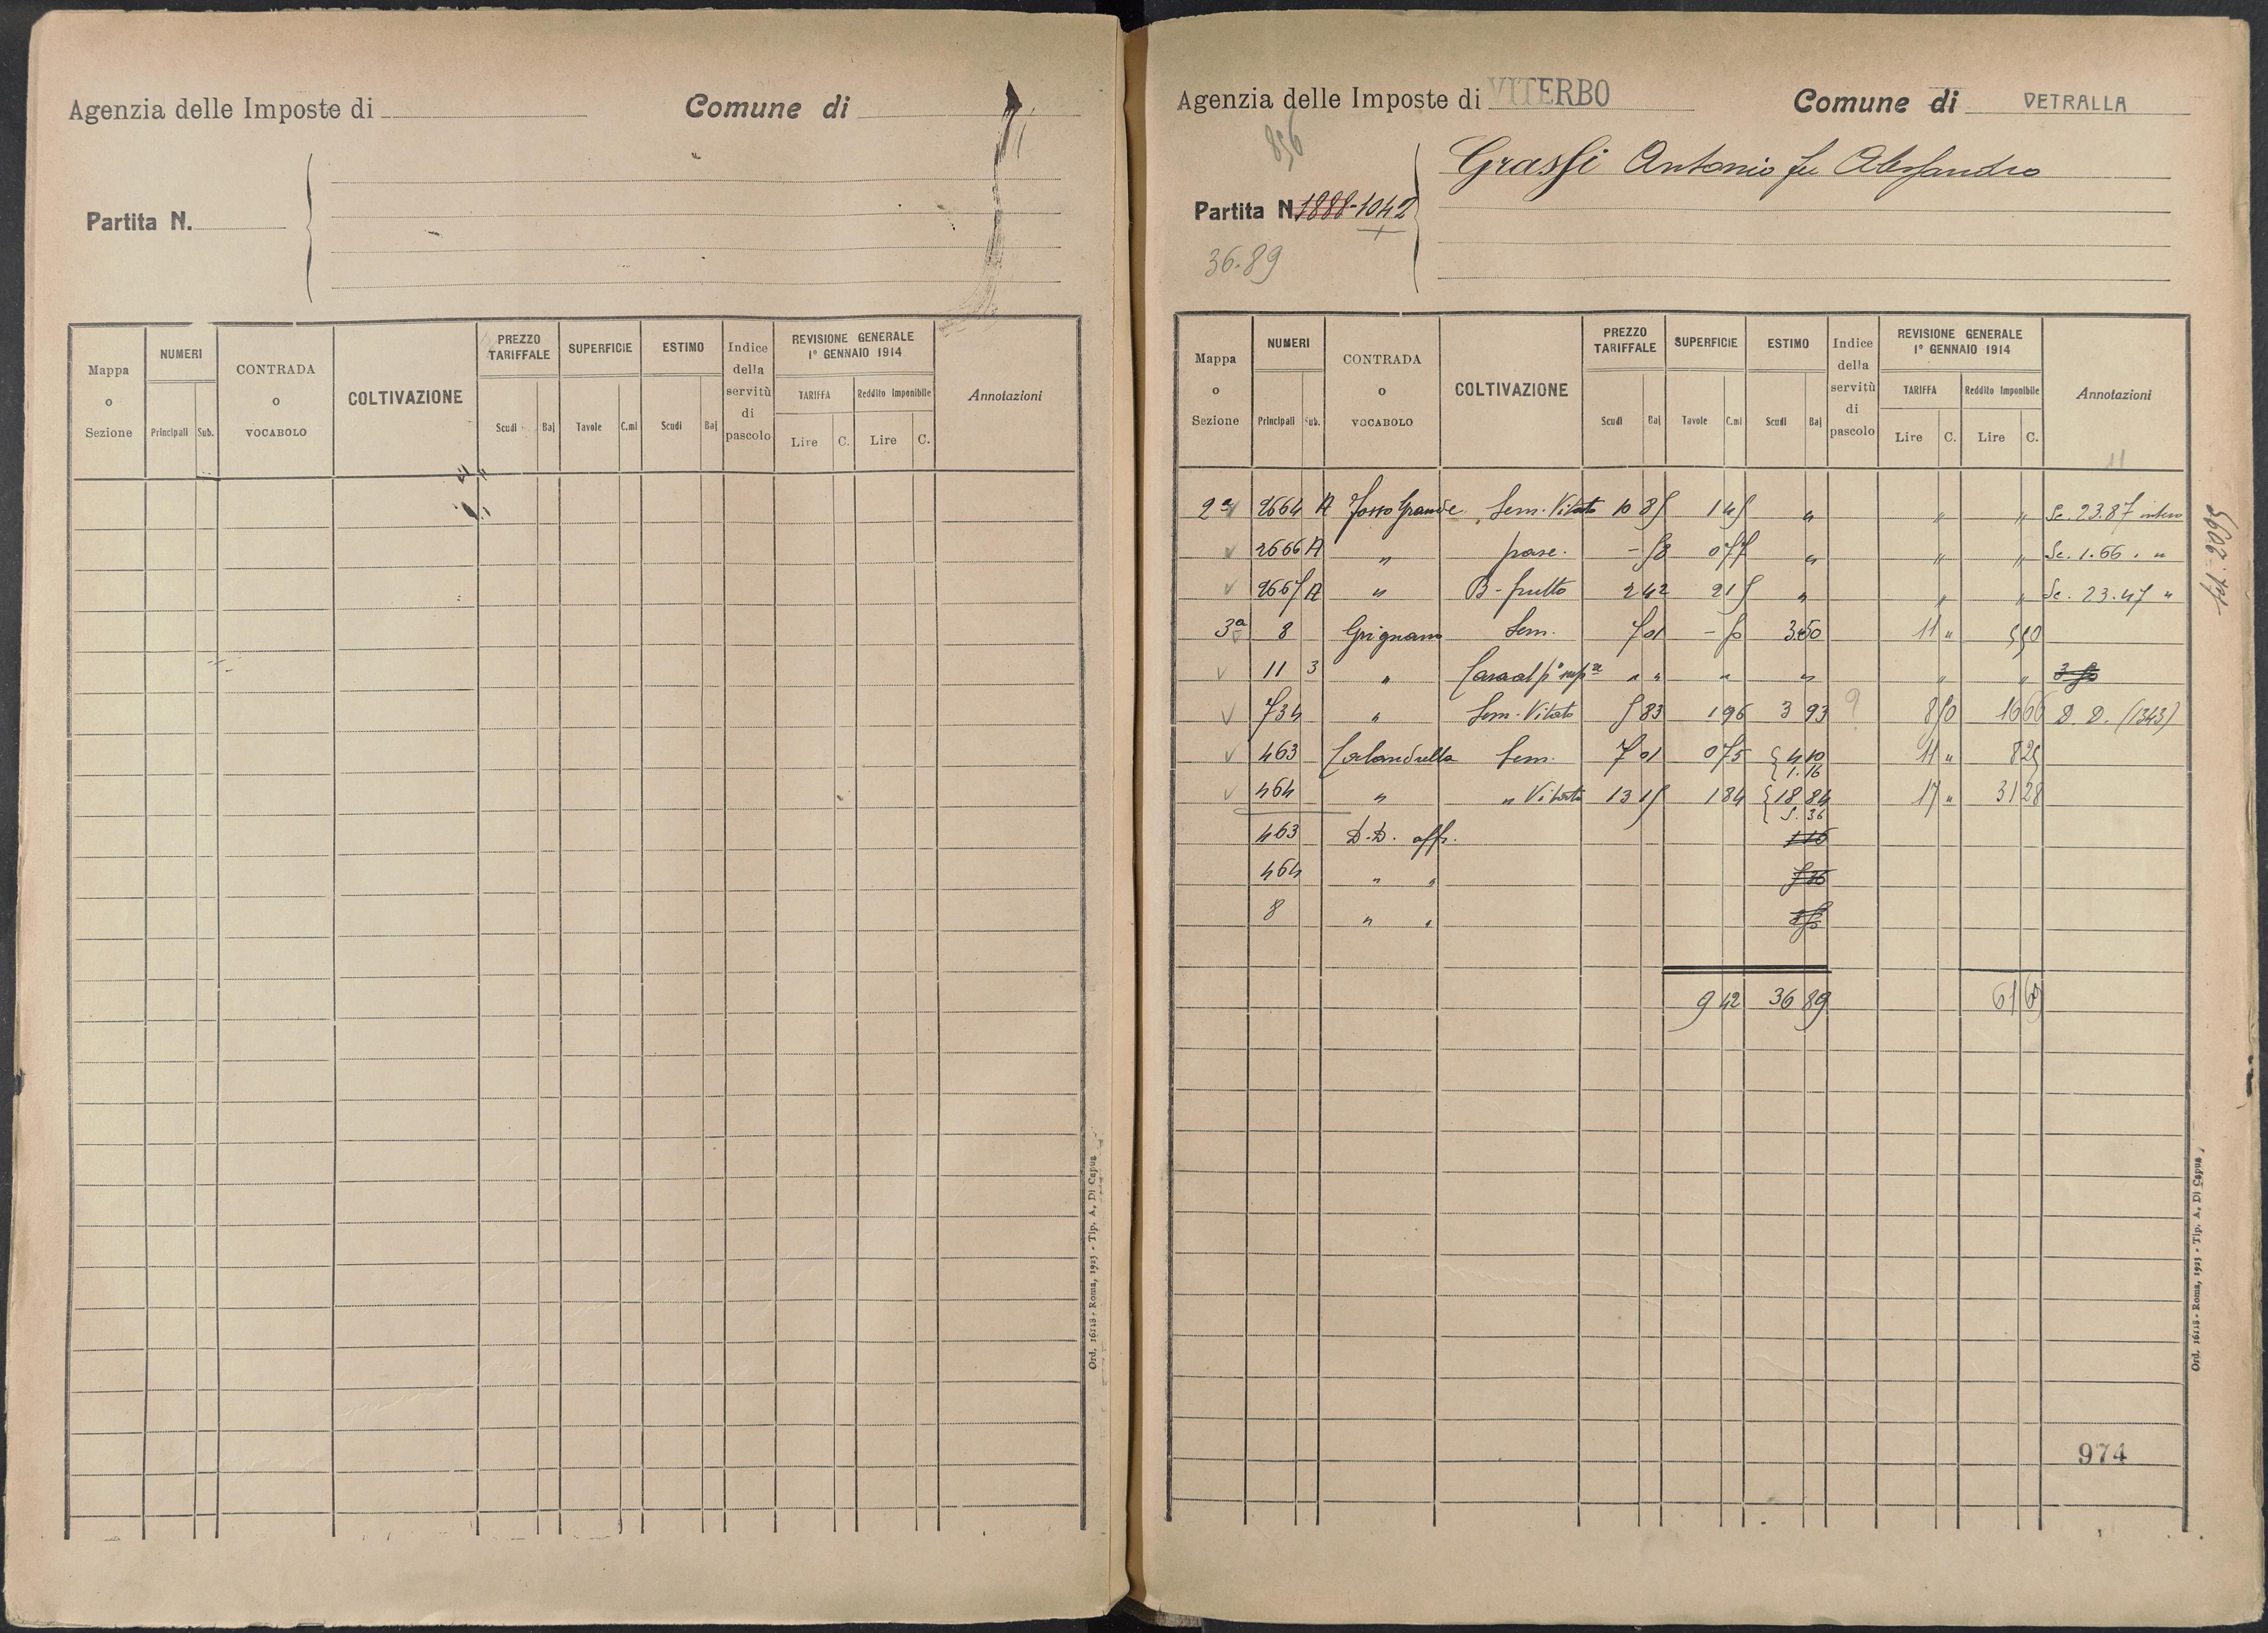 Agenzia delle Imposte di
Comune di
Partita N.
Mappa o Sezione
NUMERI
Principali Sub.
CONTRADA o VOCABOLO
COLTIVAZIONE
PREZZO TARIFFALE
Scudi Baj
SUPERFICIE
Tavole C.mi
ESTIMO
Scudi Baj
Indice della servitù di pascolo
REVISIONE GENERALE
1° GENNAIO 1914
TARIFFA
Lire C.
Reddito Imponibile
Lire C.
Annotazioni
Ord. 16118 - Roma, 1923 - Tip. A. Di Capua
Agenzia delle Imposte di VITERBO
Comune di VETRALLA
856
Grassi Antonio fu Alessandro
Partita N. 1888-1042
36.89
Mappa o Sezione
NUMERI
Principali Sub.
CONTRADA o VOCABOLO
COLTIVAZIONE
PREZZO TARIFFALE
Scudi Baj
SUPERFICIE
Tavole C.mi
ESTIMO
Scudi Baj
Indice della servitù di pascolo
REVISIONE GENERALE
1° GENNAIO 1914
TARIFFA
Lire C.
Reddito Imponibile
Lire C.
Annotazioni
11
2a 2664 A Fosso Grande Sem. Vitato 10 85 1 45 " " " Sc. 23.87 intero
2666 A " pasc. " " " Sc. 1.66 . "
2667 A " B. frutto 2 42 " " " Sc. 23.47 "
3a 8 Grignano Sem. 7 01 - 50 3 50 11 " 5 50
11 3 " Casa al p° " " " " " "
734 " Sem. Vitato 5 83 1 96 3 93 ? 8 50 16 66 D. D. (1343)
463 Calandrella Sem. 7 01 0 75 4 10 11 " 8 25
1.16
464 " " Vitato 13 15 1 84 18 84 17 " 31 28
5.36
463 D.D. aff. 1 16
464 " " 5 36
8 " "
9 42 36 89 61 69
974
Ord. 16118 - Roma, 1923 - Tip. A. Di Capua